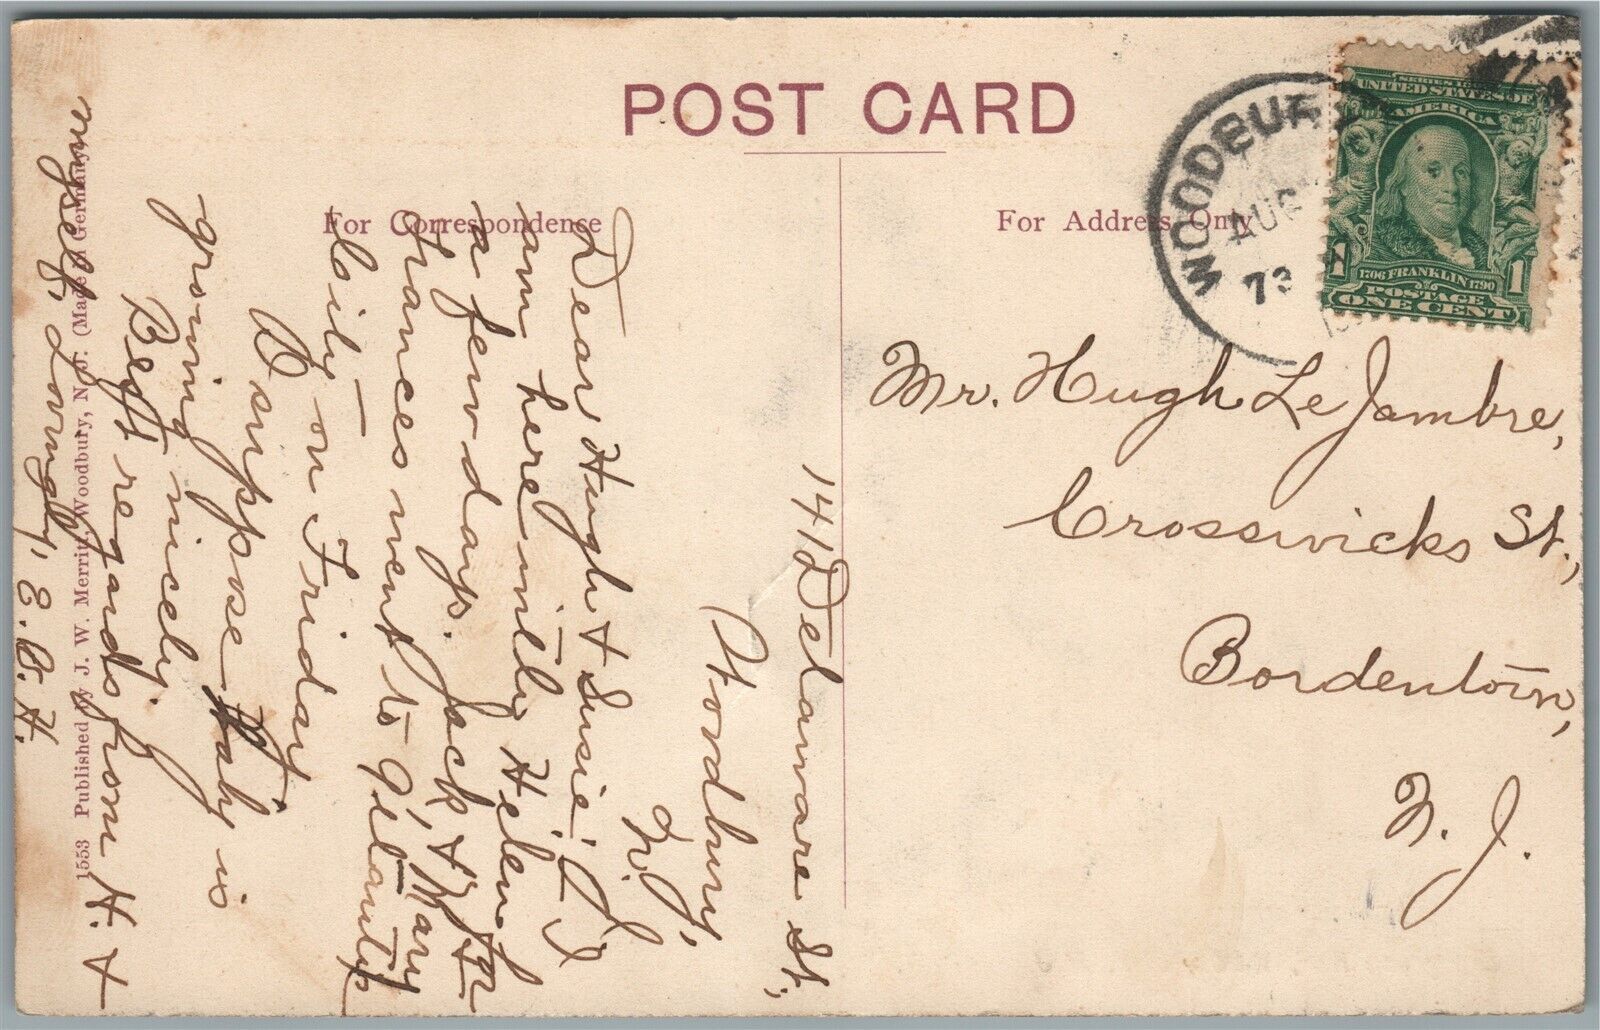 POST CARD
For Correspondence
For Address Only
WOODBU
AUG
SERIES
UNITED STATES OF
AMERICA
1 1
1706 FRANKLIN 1790
POSTAGE
ONE CENT
Mr. Hugh Le Jambre,
Crosswicks St.,
Bordentown,
N. J.
141 Delaware St,
Woodbury,
N.J.
Dear Hugh & Susie; I
am here with Helen for
a few days. Jack & Mary &
Frances went to Atlantic
City on Friday.
I suppose baby is
growing nicely.
Best regards from H. &
myself, Lovingly, E. B. H.
1553 Published by J. W. Merritt, Woodbury, N. J. (Made in Germany)